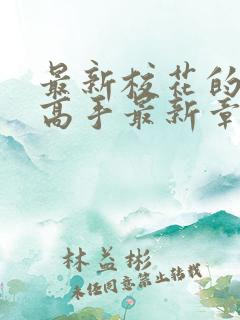 最新校花的
高手最新章
林益彬
未经同意禁止转载